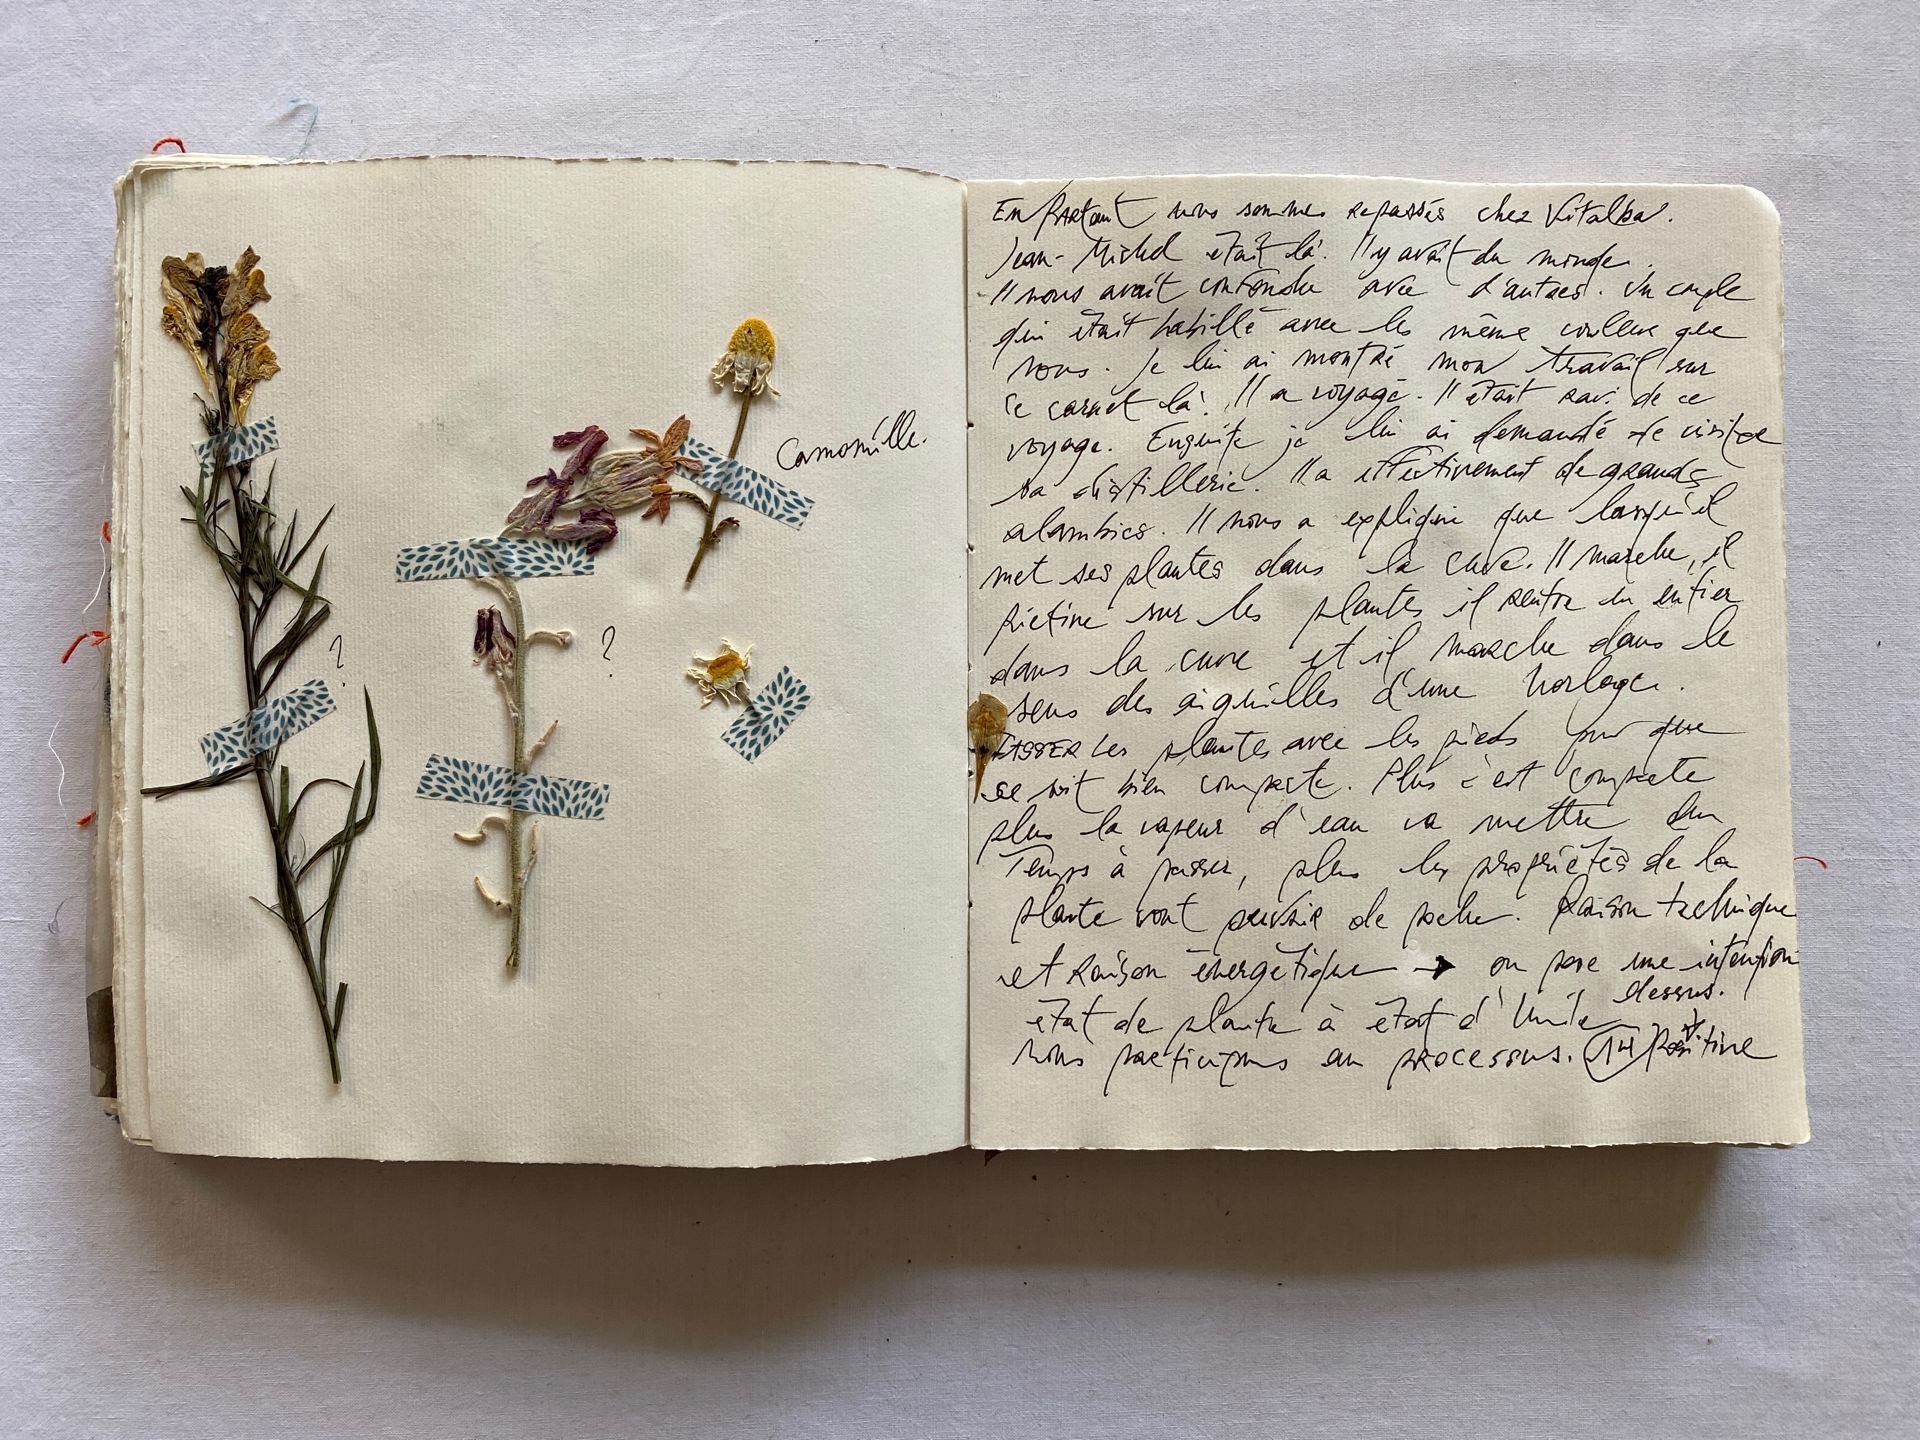 Camomille.
?
?
En partant nous sommes repassés chez Vitalba.
Jean-Michel était là. Il y avait du monde.
Il nous avait confondu avec d'autres. Un couple
qui était habillé avec les même couleur que
nous. Je lui ai montré mon travail sur
ce carnet là. Il a voyagé. Il était ravi de ce
voyage. Ensuite je lui ai demandé de visiter
sa distillerie. Il a effectivement de grands
alambics. Il nous a expliqué que lorsqu'il
met ses plantes dans la cuve. Il marche, il
piétine sur les plantes il rentre en entier
dans la cuve et il marche dans le
sens des aiguilles d'une horloge.
TASSER les plantes avec les pieds pour que
ce soit bien compacte. Plus c'est compacte
plus la vapeur d'eau va mettre du
Temps à passer, plus les propriétés de la
plante vont pouvoir de
Raison technique
et Raison énergétique → on pose une intention
dessus.
état de plante à état d'huile
nous participons au processus. 1H Positive